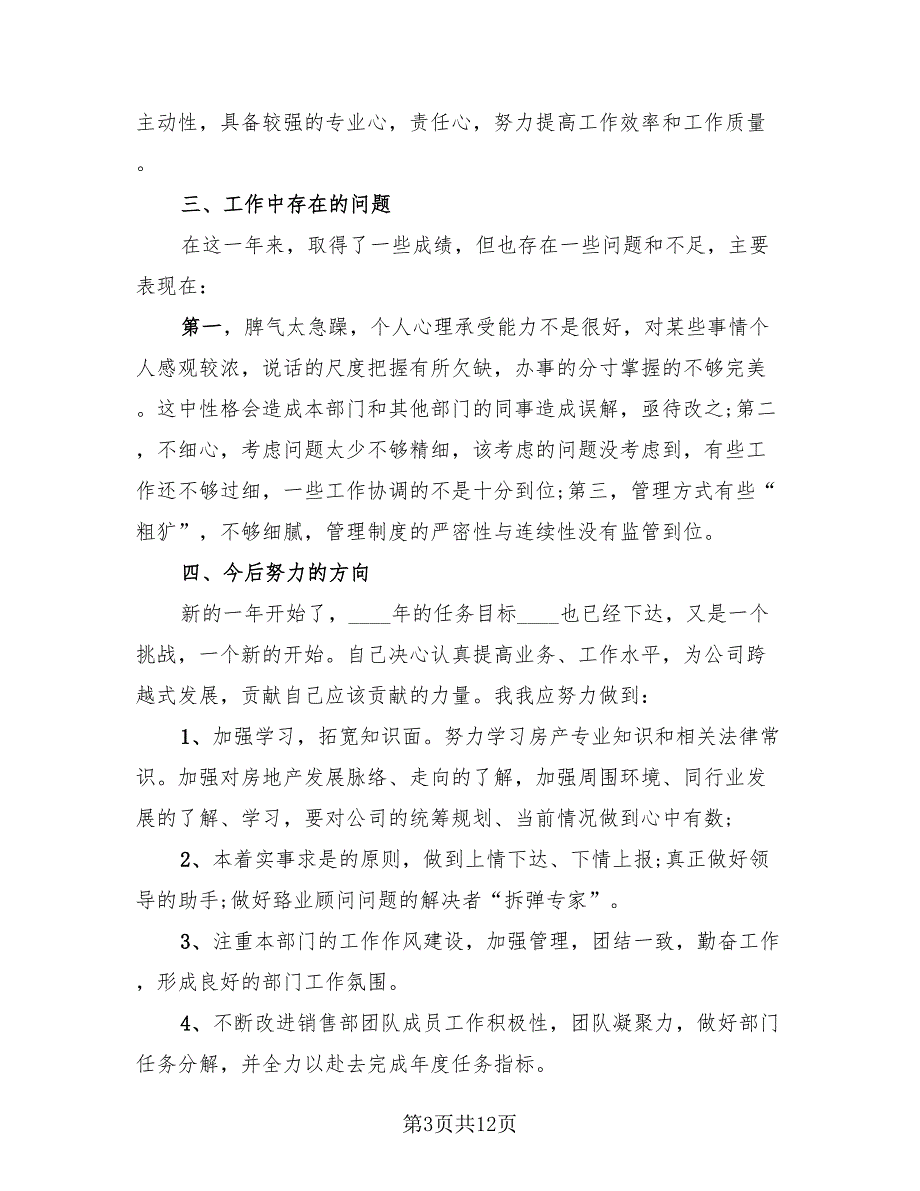 主动性，具备较强的专业心，责任心，努力提高工作效率和工作质量
。
三、工作中存在的问题
在这一年来，取得了一些成绩，但也存在一些问题和不足，主要
表现在：
第一，脾气太急躁，个人心理承受能力不是很好，对某些事情个
人感观较浓，说话的尺度把握有所欠缺，办事的分寸掌握的不够完美
。这中性格会造成本部门和其他部门的同事造成误解，亟待改之;第二
，不细心，考虑问题太少不够精细，该考虑的问题没考虑到，有些工
作还不够过细，一些工作协调的不是十分到位;第三，管理方式有些“
粗犷”，不够细腻，管理制度的严密性与连续性没有监管到位。
四、今后努力的方向
新的一年开始了，____年的任务目标____也已经下达，又是一个
挑战，一个新的开始。自己决心认真提高业务、工作水平，为公司跨
越式发展，贡献自己应该贡献的力量。我我应努力做到：
1、加强学习，拓宽知识面。努力学习房产专业知识和相关法律常
识。加强对房地产发展脉络、走向的了解，加强周围环境、同行业发
展的了解、学习，要对公司的统筹规划、当前情况做到心中有数;
2、本着实事求是的原则，做到上情下达、下情上报;真正做好领
导的助手;做好臵业顾问问题的解决者“拆弹专家”。
3、注重本部门的工作作风建设，加强管理，团结一致，勤奋工作
，形成良好的部门工作氛围。
4、不断改进销售部团队成员工作积极性，团队凝聚力，做好部门
任务分解，并全力以赴去完成年度任务指标。
第3页共12页